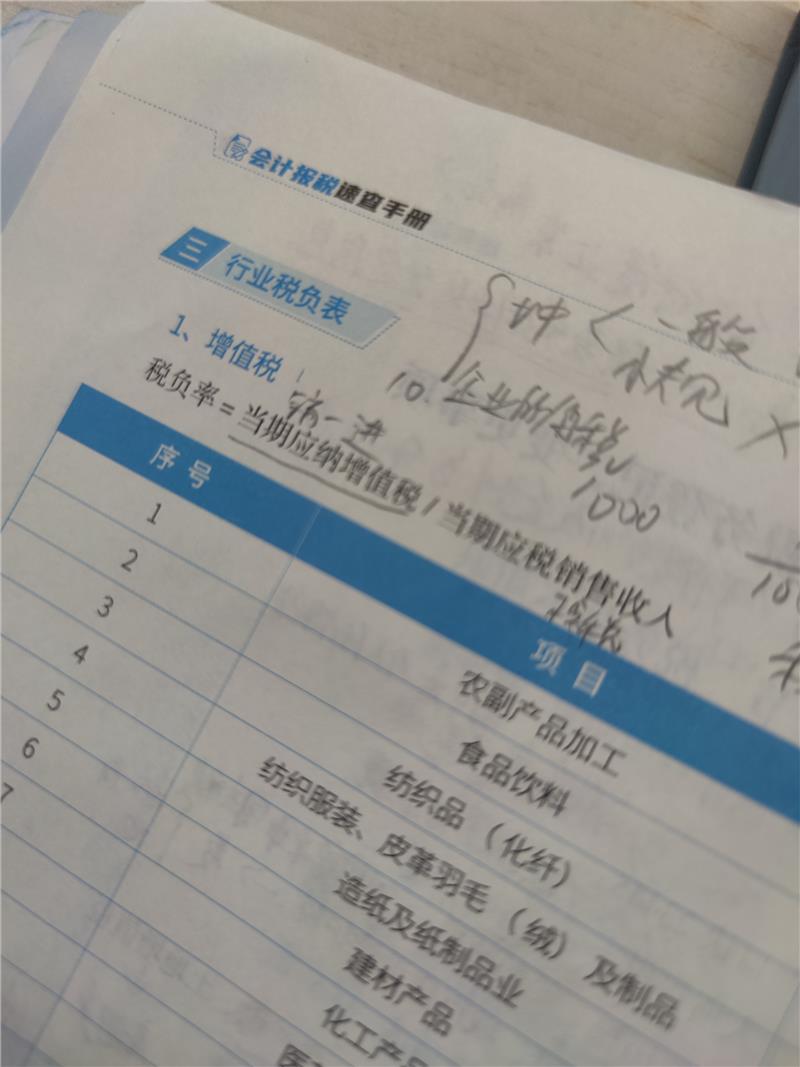 会计报税速查手册
三 行业税负表
1、增值税
税负率=当期应纳增值税/当期应税销售收入
一般
企业所得税
10
1000
序号 项目
1 农副产品加工
2 食品饮料
3 纺织品（化纤）
4 纺织服装、皮革羽毛（绒）及制品
5 造纸及纸制品业
6 建材产品
7 化工产品